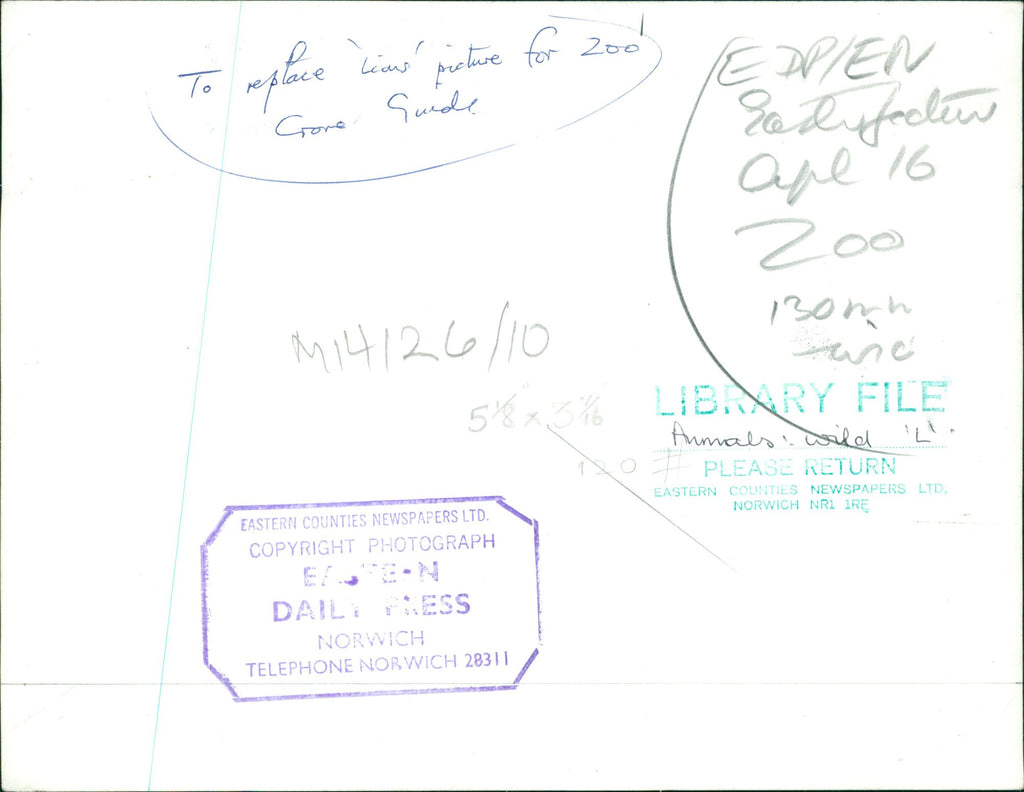 To replace 'Lions' picture for Zoo
Guide
EDP/EN
Apl 16
Zoo
130 mm
M14126/10
5 1/8 x 3 7/16
120
LIBRARY FILE
Animals: wild 'L'.
PLEASE RETURN
EASTERN COUNTIES NEWSPAPERS LTD,
NORWICH NR1 1RE
EASTERN COUNTIES NEWSPAPERS LTD.
COPYRIGHT PHOTOGRAPH
EASTERN
DAILY PRESS
NORWICH
TELEPHONE NORWICH 28311